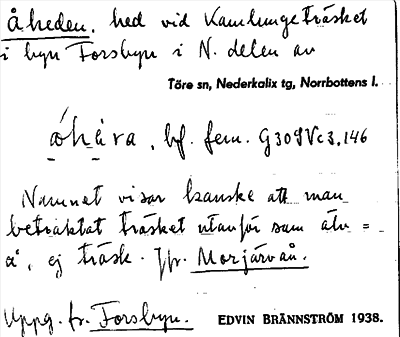 Åheden, hed vid Kamlungeträsket
i byn Forsbyn i N. delen av
Töre sn, Nederkalix tg, Norrbottens l.
åhära, bf. fem. G309Vc3.146
Namnet visar kanske att man
betraktat träsket utanför som älv =
å, ej träsk. Jfr. Morjärvån.
Uppg. fr. Forsbyn.
EDVIN BRÄNNSTRÖM 1938.